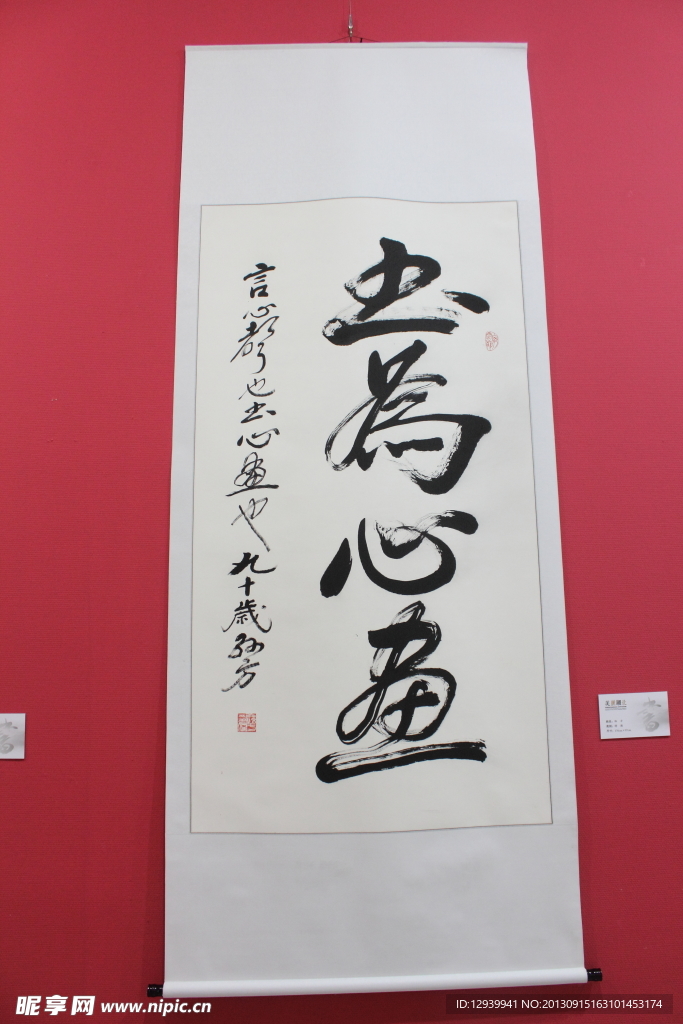 书为心画
言心声也书心画也九十岁孙方
昵享网 www.nipic.cn
ID:12939941 NO:20130915163101453174